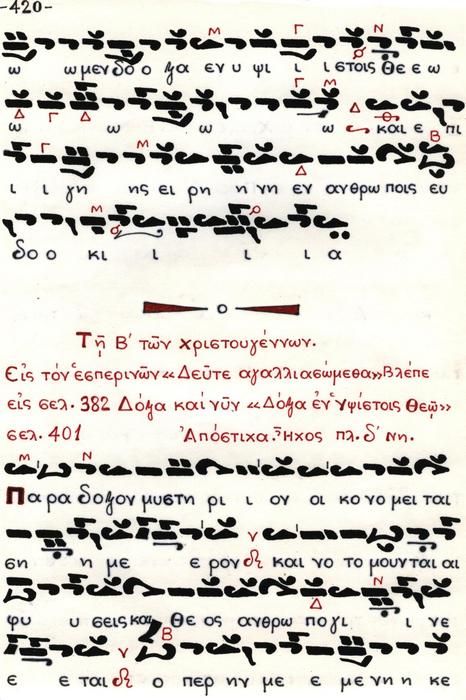 -420-
ω ω μεν δο ο ξα εν υ ψι ι ι στοις Θε ε ω
ω ω ω ω και ε πι
ι ι γη ης ει ρη η νη εν ανθρω ποις ευ
δο ο κι ι ι ι α
Τῇ Β΄ τῶν χριστουγέννων.
Εἰς τόν ἑσπερινῶν «Δεῦτε αγαλλιασώμεθα» Βλέπε
εἰς σελ. 382 Δόξα καί νῦν «Δόξα ἐν Ὑψίστοις Θεῷ»
σελ. 401 Ἀπόστιχα. Ἦχος πλ. δ΄ Νη.
Πα ρα δοξον μυστη ρι ι ον οι κο νο μει ται
ση η με ε ρον και νο το μουνται αι
φυ υ σεις και Θε ος ανθρω πο γι ι νε
ε ε ται ο περ ην με ε με νη η κε